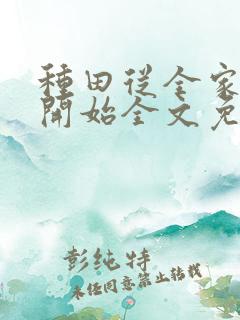 種田從全家
開始全文免
彭纯特
未经同意禁止转载